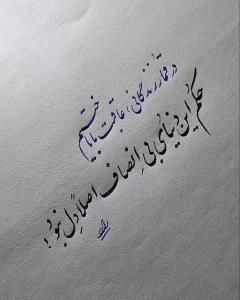 در قمار زندگانی، عاقبت ما باختیم
حکم این دنیای بی انصاف اصلاً دل نبود!